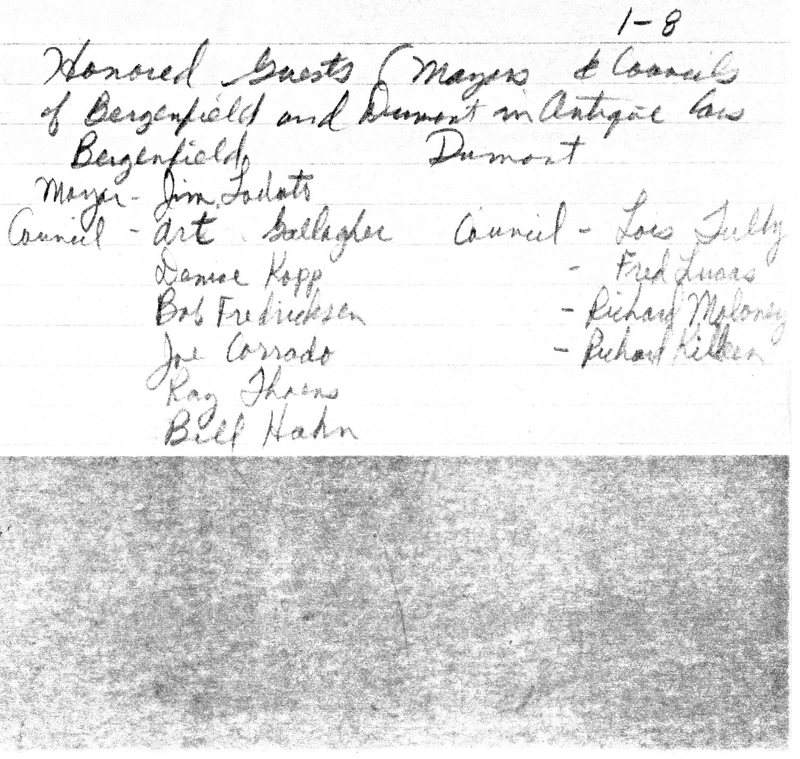 1-8
Honored Guests (Mayors & Councils
of Bergenfield and Dumont in Antique Cars
Bergenfield, Dumont
Mayor - Jim Lodato
Council - Art Gallagher Council - Lois Tully
Denise Kopp - Fred Lucas
Bob Fredricksen - Richard Moloney
Joe Corrado - Richard Killeen
Ray
Bill Hahn